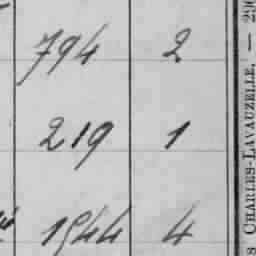 794 2
219 1
1544 4
s CHARLES-LAVAUZELLE, — 29